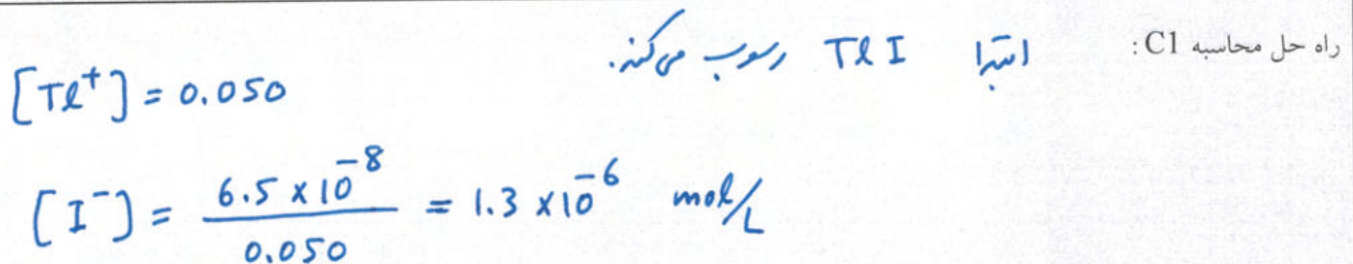 راه حل محاسبه C1: ابتدا TlI رسوب می‌کند.
[Tl⁺] = 0.050
[I⁻] = 6.5 × 10⁻⁸ / 0.050 = 1.3 × 10⁻⁶ mol/L